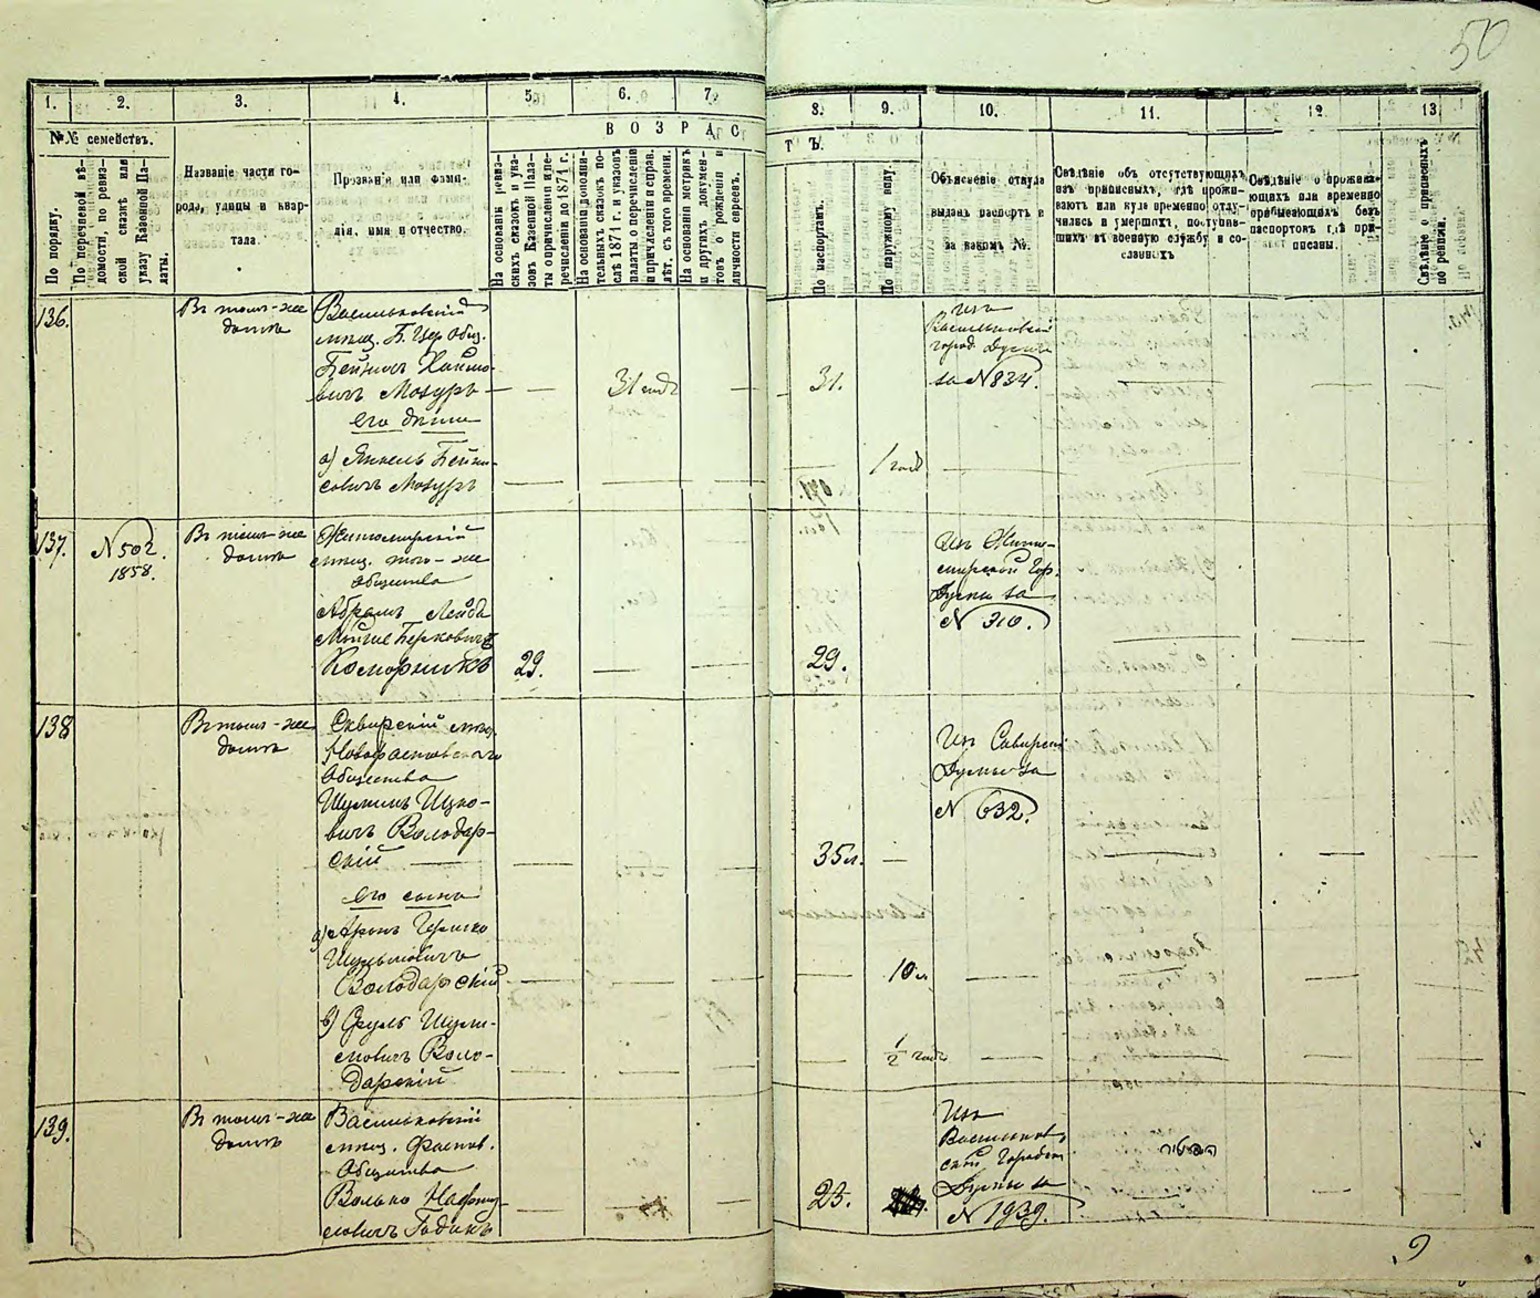 50
1.
2.
3.
4.
5.
6.
7.
8.
9.
10.
11.
12.
13
№№ семействъ.
По порядку.
По перечневой вѣ-
домости, по ревиз-
ской сказкѣ или
указу Казенной Па-
латы.
Названіе части го-
рода, улицы и квар-
тала.
Прозваніе или фами-
лія, имя и отчество.
ВОЗРАС
ТЪ.
На основаніи ревиз-
скихъ сказокъ и ука-
зовъ Казенной Пала-
ты о причисленіи и пе-
речисленіи до 1871 г.
На основаніи дополни-
тельныхъ сказокъ по-
слѣ 1871 г. и указовъ
палаты о перечисленіи
и причисленіи и справ.
лѣт. съ того времени.
На основаніи метрикъ
и другихъ докумен-
товъ о рожденіи и
личности евреевъ.
По паспортамъ.
По наружному виду.
Объясненіе откуда
выданъ паспортъ и
за какимъ №.
Свѣдѣніе объ отсутствующихъ
изъ приписныхъ, гдѣ прожи-
ваютъ или куда временно отлу-
чились и умершихъ, поступив-
шихъ въ военную службу и со-
сланныхъ
Свѣдѣніе о прожива-
ющихъ или временно
пребывающихъ безъ
паспортовъ гдѣ при-
писаны.
Свѣдѣніе о приписныхъ
по ревизіи.
136.
Въ томъ-же
домѣ
Васильковскій
мѣщ. Б. Цер. Общ.
Бейнисъ Хаимо-
вичъ Мозуръ
31 годъ
31.
Изъ
Васильковской
город. Думы
за № 834.
его дѣти
а) Янкель Бейни-
совичъ Мозуръ
1 годъ
137.
№ 502.
1858.
Въ томъ-же
домѣ
Житомирскій
мѣщ. того-же
Общества
Абрамъ Лейба
Мойше Берковичъ
Коморников
29.
29.
Изъ Жито-
мирской Гор.
Думы за
№ 310.
138
Въ томъ-же
домѣ
Сквирскій мѣщ.
Новофастовскаго
Общества
Шулимъ Ицко-
вичъ Володар-
скій
35 л.
Изъ Сквирской
Думы за
№ 632.
его сыны
а) Аронъ Гершко
Шулимовичъ
Володарскій
10 л
в) Сруль Шули-
мовичъ Воло-
дарскій
1/2 года
139.
Въ томъ-же
домѣ
Васильковскій
мѣщ. Фастов.
Общества
Волько Нафту-
ловичъ Годикъ
23.
Изъ
Васильков-
ской Городской
Думы за
№ 1939.